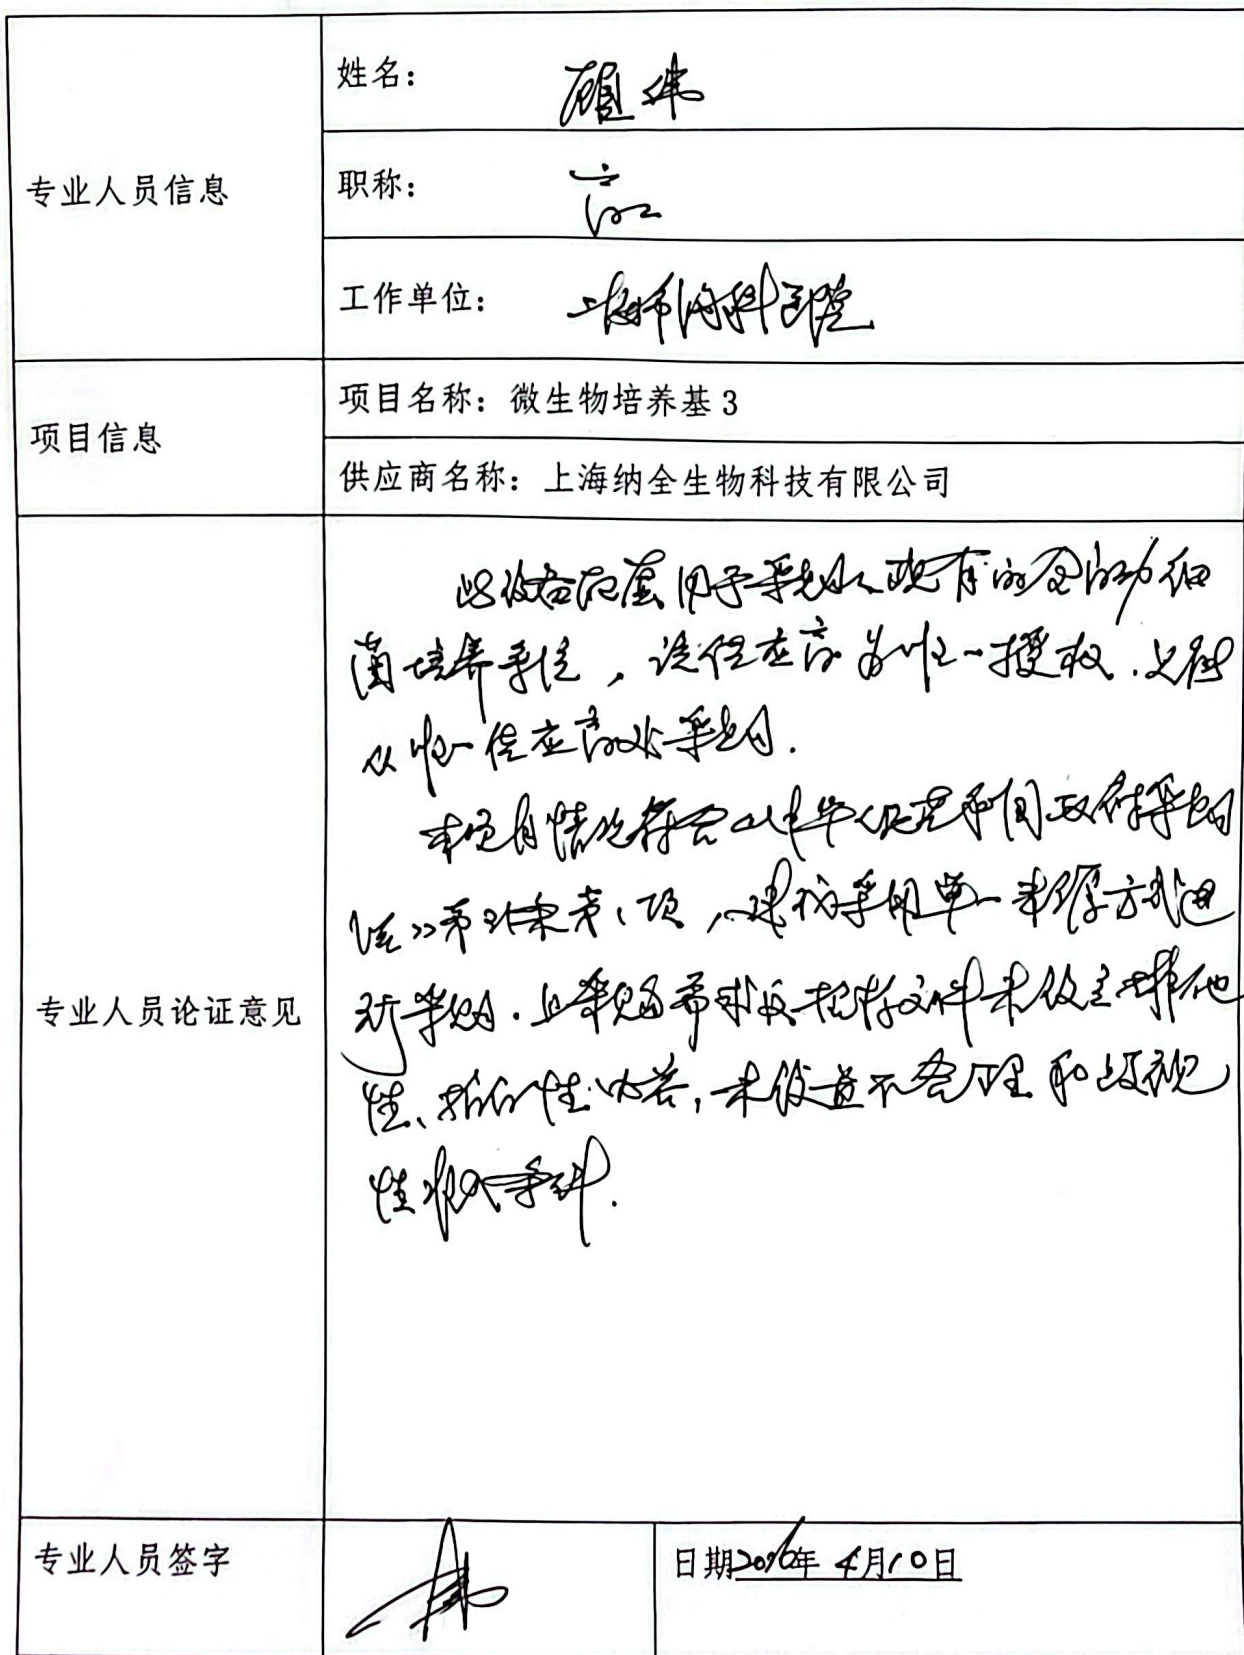 专业人员信息
姓名: 顾伟
职称: 高工
工作单位: 上海市胸科医院
项目信息
项目名称: 微生物培养基3
供应商名称: 上海纳全生物科技有限公司
专业人员论证意见
此设备配套用于采购人现有的全自动细
菌培养系统，该供应商为唯一授权.只能
从唯一供应商处采购.
本项目情况符合《中华人民共和国政府采购
法》第31条第1项，建议采用单一来源方式进
行采购.且采购需求及招标文件未设定排他
性、指向性内容，未设置不合理和歧视
性准入条件.
专业人员签字
日期 年4月10日